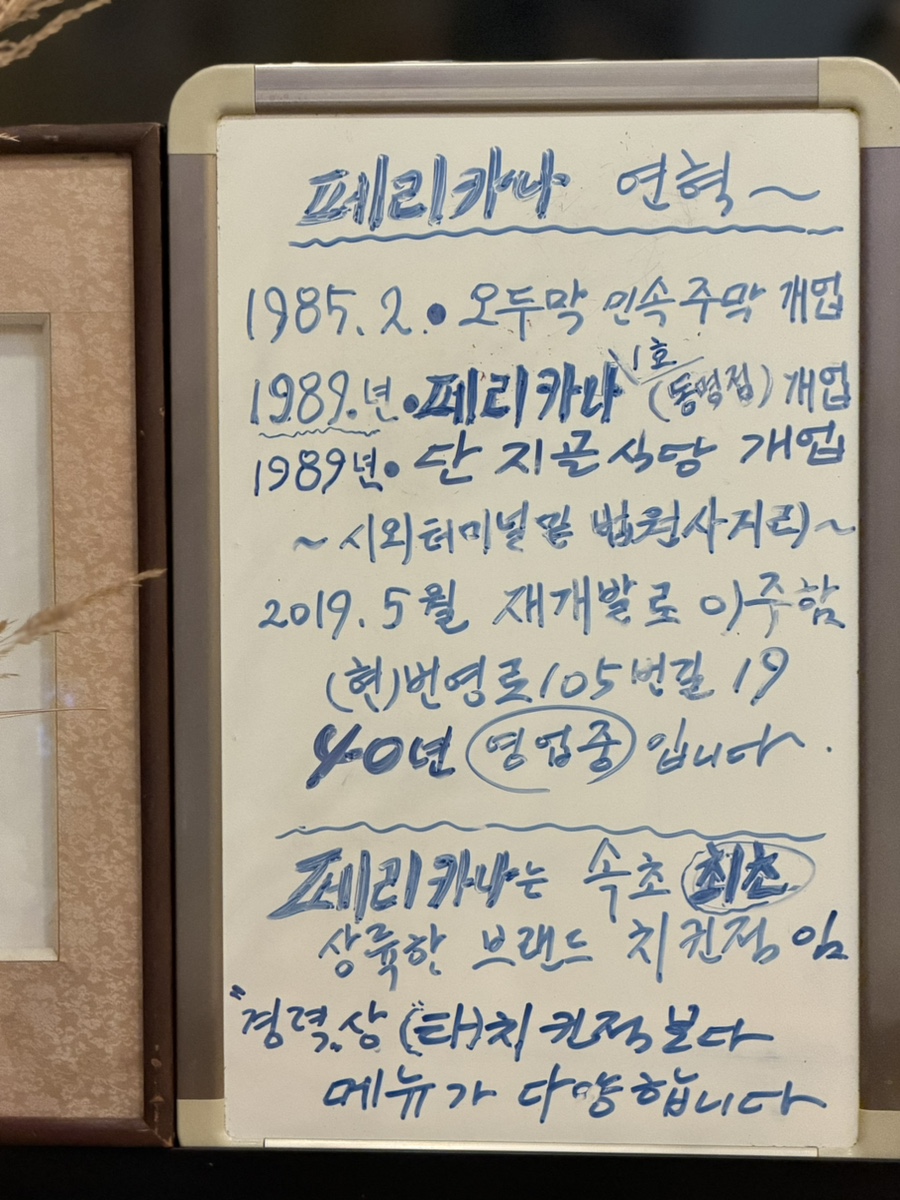 페리카나 연혁~
1985.2. • 오두막 민속주막 개업
1989.년 • 페리카나 1호 (동명점) 개업
1989년 • 단지곰식당 개업
~시외터미널 밑 법원사거리~
2019.5월 재개발로 이주함
(현)번영로105번길 19
40년 영업중 입니다.
페리카나는 속초 최초
상륙한 브랜드 치킨점 임
"경력"상 (타)치킨점 보다
메뉴가 다양합니다